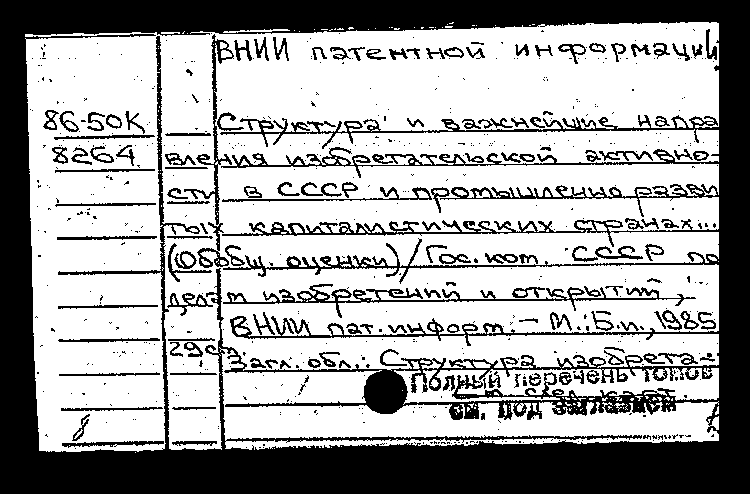 ВНИИ патентной информации
86-50К Структура и важнейшие напра
8264 вления изобретательской активно-
сти в СССР и промышленно разви
тых капиталистических странах...
(Обобщ. оценки)/Гос. ком. СССР по
делам изобретений и открытий,
ВНИИ пат. информ. – М.: Б.и., 1985
29 см
Загл. обл.: Структура изобрета-
Полный перечень томов
см. под заглавием
8